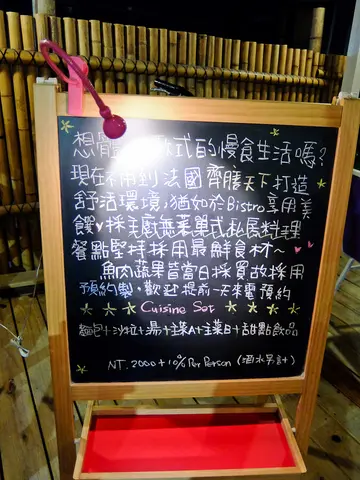 想體歐式的慢食生活嗎?
現在不用到法國 齊膳天下打造
舒活環境,猶如於Bistro享用美
饌♥採無菜單式私房料理
餐點堅持採用最鮮食材~
魚肉蔬果皆當日採買故採用
預約制,歡迎提前一天來電預約
Cuisine Set
麵包+沙拉+湯+主菜A+主菜B+甜點飲品
NT. 2000+10% Per Person (酒水另計)